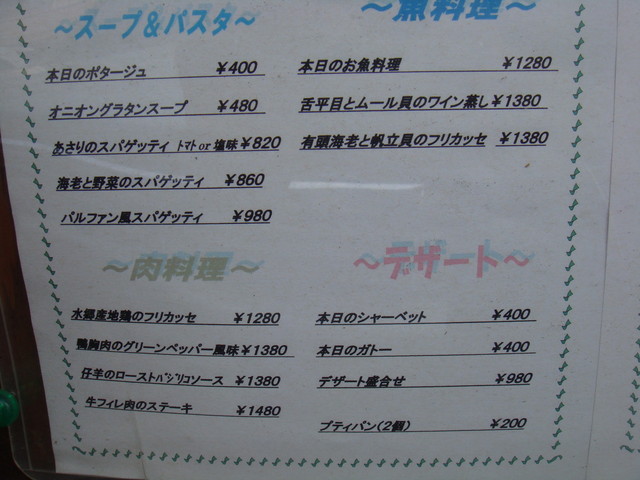 ～スープ&パスタ～
本日のポタージュ ￥400
オニオングラタンスープ ￥480
あさりのスパゲッティ ﾄﾏﾄor塩味￥820
海老と野菜のスパゲッティ ￥860
パルファン風スパゲッティ ￥980
～魚料理～
本日のお魚料理 ￥1280
舌平目とムール貝のワイン蒸し￥1380
有頭海老と帆立貝のフリカッセ ￥1380
～肉料理～
水郷産地鶏のフリカッセ ￥1280
鴨胸肉のグリーンペッパー風味￥1380
仔羊のローストﾊﾞｼﾞﾘｺソース ￥1380
牛フィレ肉のステーキ ￥1480
～デザート～
本日のシャーベット ￥400
本日のガトー ￥400
デザート盛合せ ￥980
プティパン(2個) ￥200